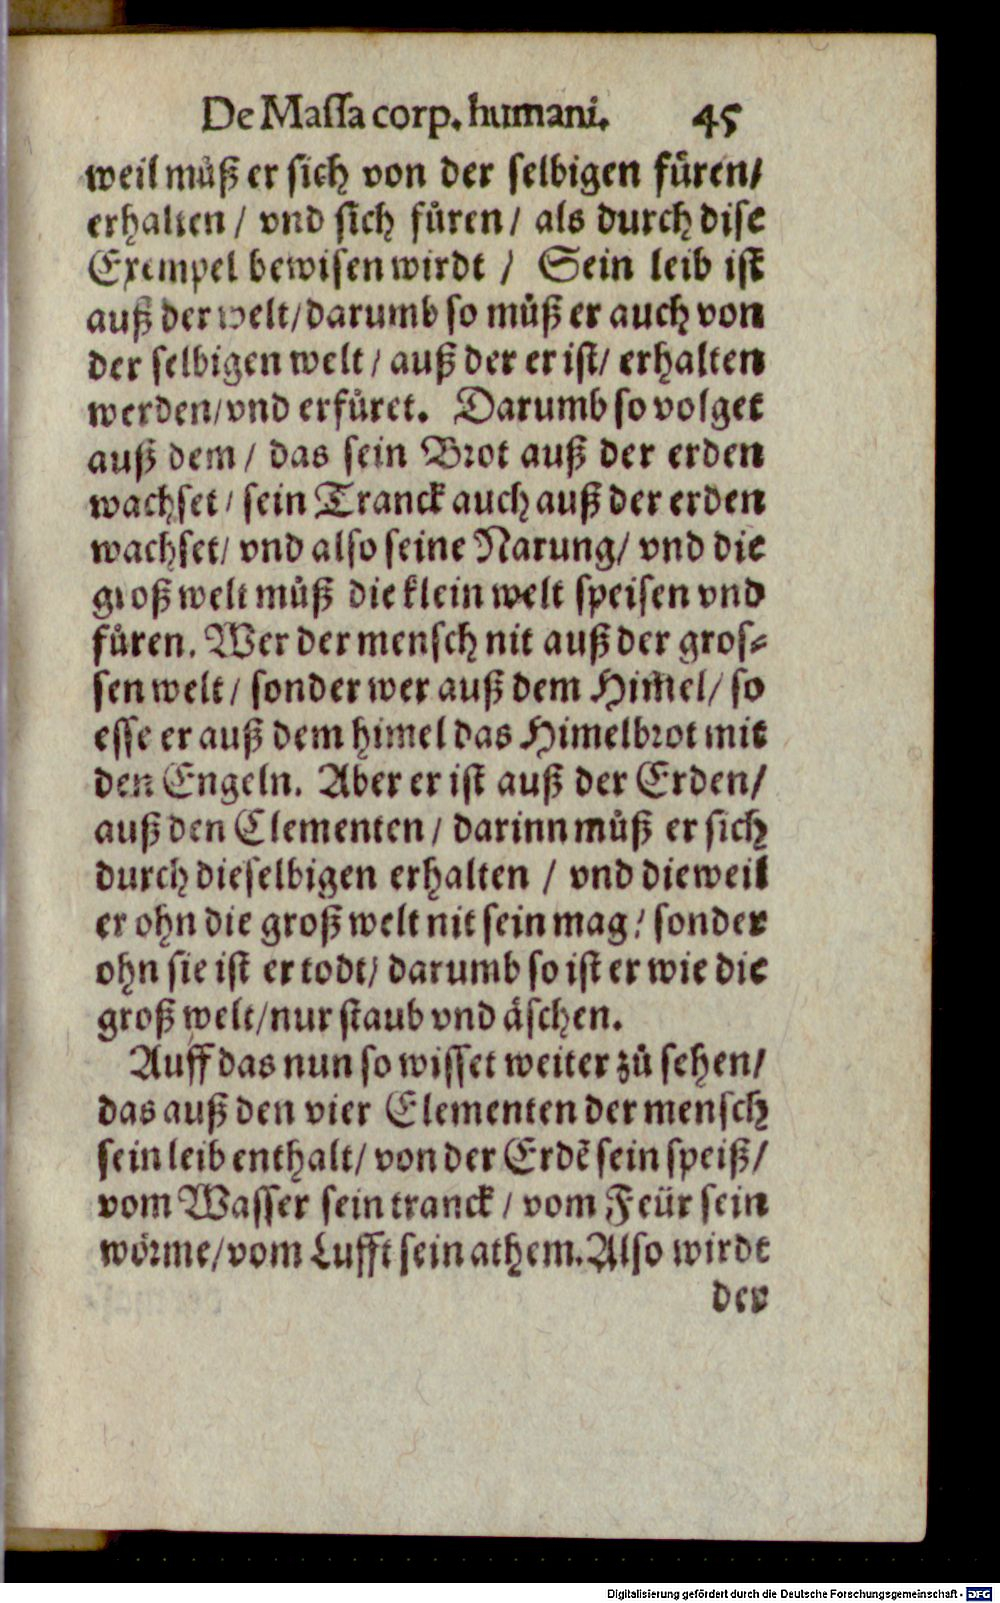 De Maſſa corp. humani. 45
weil můß er ſich von der ſelbigen fůren/
erhalten / vnd ſich fůren / als durch diſe
Exempel bewiſen wirdt / Sein leib iſt
auß der welt/darumb ſo můß er auch von
der ſelbigen welt / auß der er iſt/ erhalten
werden/vnd erfůret. Darumb ſo volget
auß dem / das ſein Brot auß der erden
wachſet / ſein Tranck auch auß der erden
wachſet/ vnd alſo ſeine Narung/ vnd die
groß welt můß die klein welt ſpeiſen vnd
fůren. Wer der menſch nit auß der groſ⸗
ſen welt / ſonder wer auß dem Him̃el/ ſo
eſſe er auß dem himel das Himelbrot mit
den Engeln. Aber er iſt auß der Erden/
auß den Elementen / darinn můß er ſich
durch dieſelbigen erhalten / vnd dieweil
er ohn die groß welt nit ſein mag / ſonder
ohn ſie iſt er todt/ darumb ſo iſt er wie die
groß welt/nur ſtaub vnd äſchen.
Auff das nun ſo wiſſet weiter zů ſehen/
das auß den vier Elementen der menſch
ſein leib enthalt/ von der Erdẽ ſein ſpeiß/
vom Waſſer ſein tranck / vom Feür ſein
wörme/vom Lufft ſein athem. Alſo wirdt
der
Digitalisierung gefördert durch die Deutsche Forschungsgemeinschaft - DFG